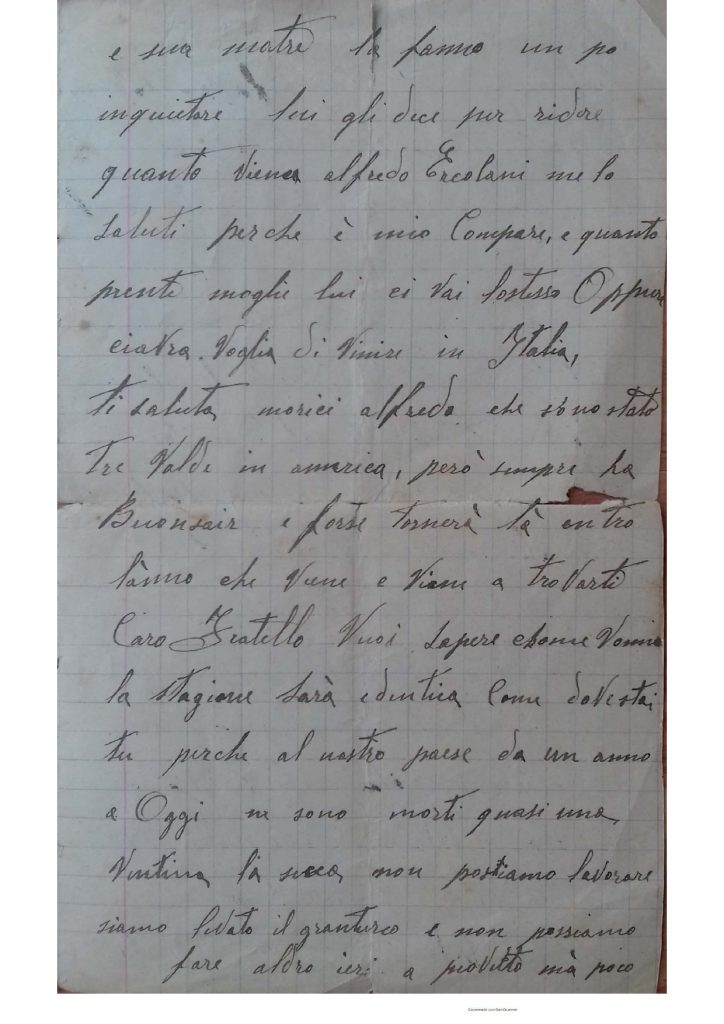 e sua matre la fanno un po
inquietare lui gli dece per ridere
quanto viene alfredo Ercolani me lo
saluti perche è mio Compare, e quanto
prente moglie lui ci vai lostesso Oppure
ciavra voglia di vinire in Italia,
ti saluta morici alfredo che sono stato
tre Valde in america, però sempre ha
Buonsair e forse tornerà là entro
lànno che viene e viene a trovarti
Caro Fratello Vuoi sapere chome
la stagione sarà edentica Come dove stai
tu perche al nostro paese da un anno
a Oggi ne sono morti quasi una
Ventina la secca non postiamo lavorare
siamo levato il granturco e non possiamo
fare aldro ieri a piovutto mà poco
Escaneado con CamScanner